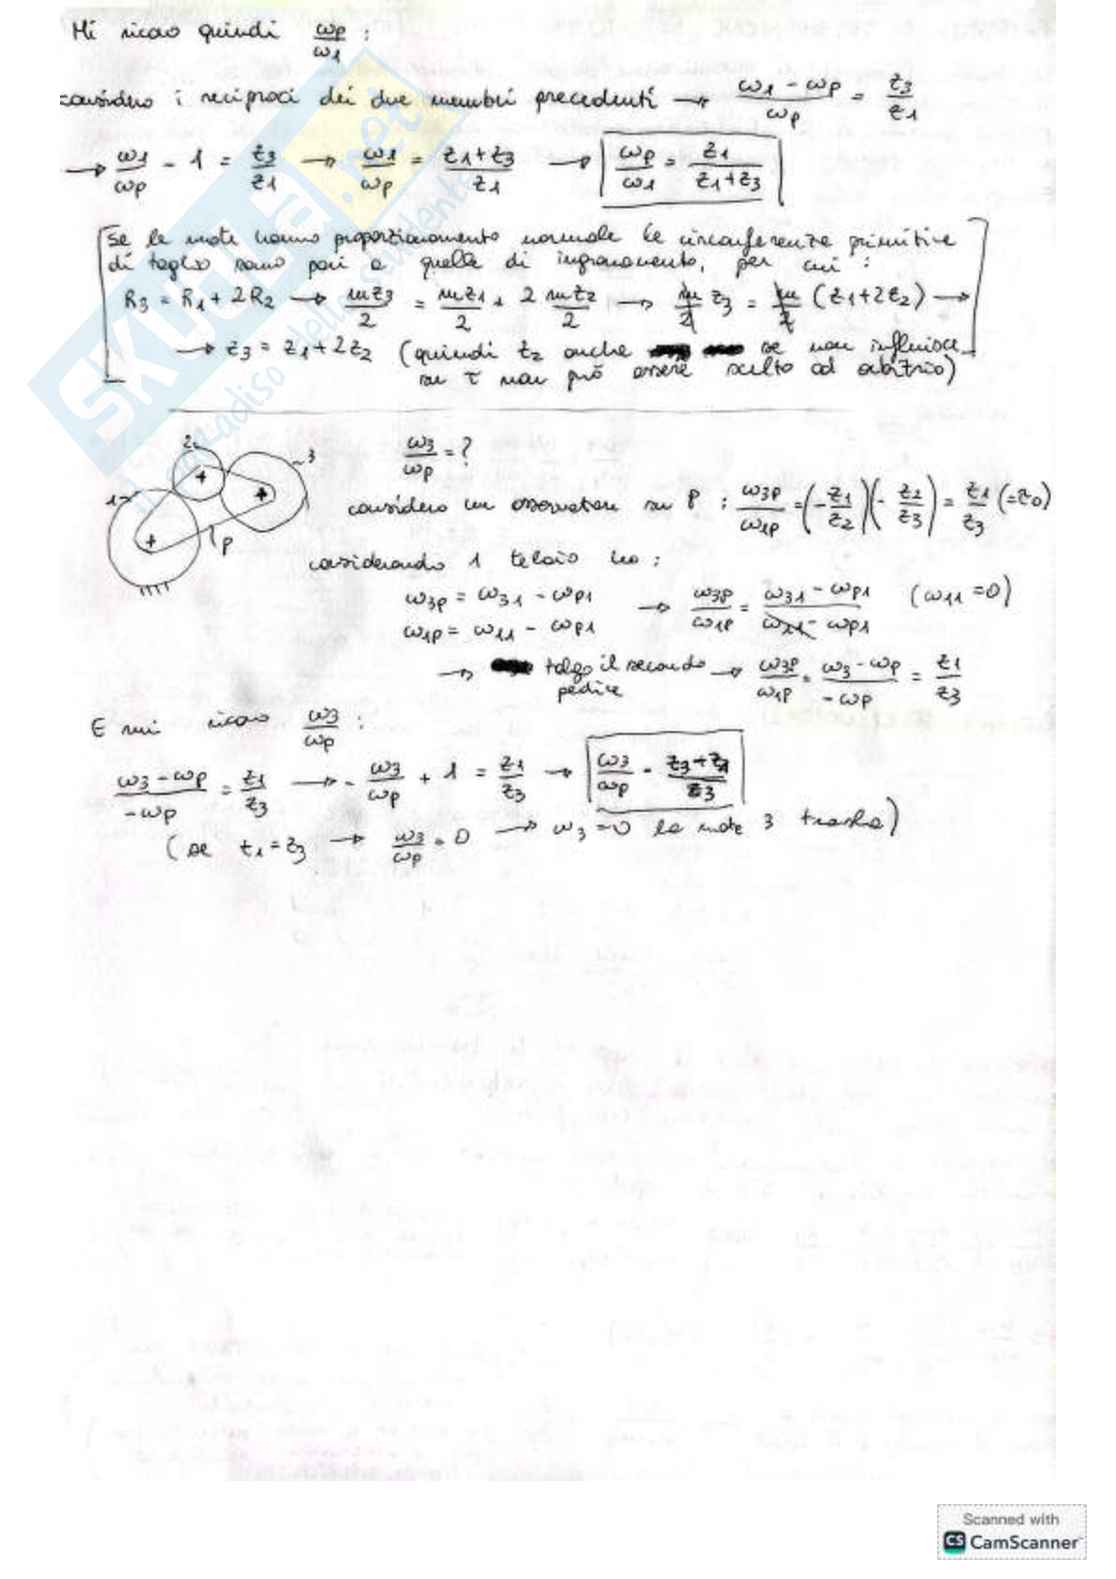 Mi ricavo quindi ωp/ω1 :
considero i reciproci dei due membri precedenti → (ω1 - ωp)/ωp = z3/z1
→ ω1/ωp - 1 = z3/z1 → ω1/ωp = (z1+z3)/z1 → ωp/ω1 = z1/(z1+z3)
[se le ruote hanno proporzionamento normale le circonferenze primitive
di taglio sono pari a quelle di ingranamento, per cui :
R3 = R1 + 2R2 → mz3/2 = mz1/2 + 2 mz2/2 → m/2 z3 = m/2 (z1+2z2) →
→ z3 = z1+2z2 (quindi z2 anche se non influisce
su τ non può essere scelto ad arbitrio)]
1 2 3 p
ω3/ωp = ?
considero un osservatore su P : ω3p/ω1p = (- z1/z2)(- z2/z3) = z1/z3 (=τ0)
considerando 1 telaio ho :
ω3p = ω31 - ωp1
ω1p = ω11 - ωp1
→ ω3p/ω1p = (ω31 - ωp1)/(ω11 - ωp1) (ω11 = 0)
→ tolgo il secondo pedice → ω3p/ω1p = (ω3 - ωp)/-ωp = z1/z3
E mi ricavo ω3/ωp :
(ω3 - ωp)/-ωp = z1/z3 → - ω3/ωp + 1 = z1/z3 → ω3/ωp = /z3
(se z1 = z3 → ω3/ωp = 0 → ω3 = 0 la ruota 3 trasla)
SKUOLA.net
il paradiso dello studente
Scanned with
CS CamScanner